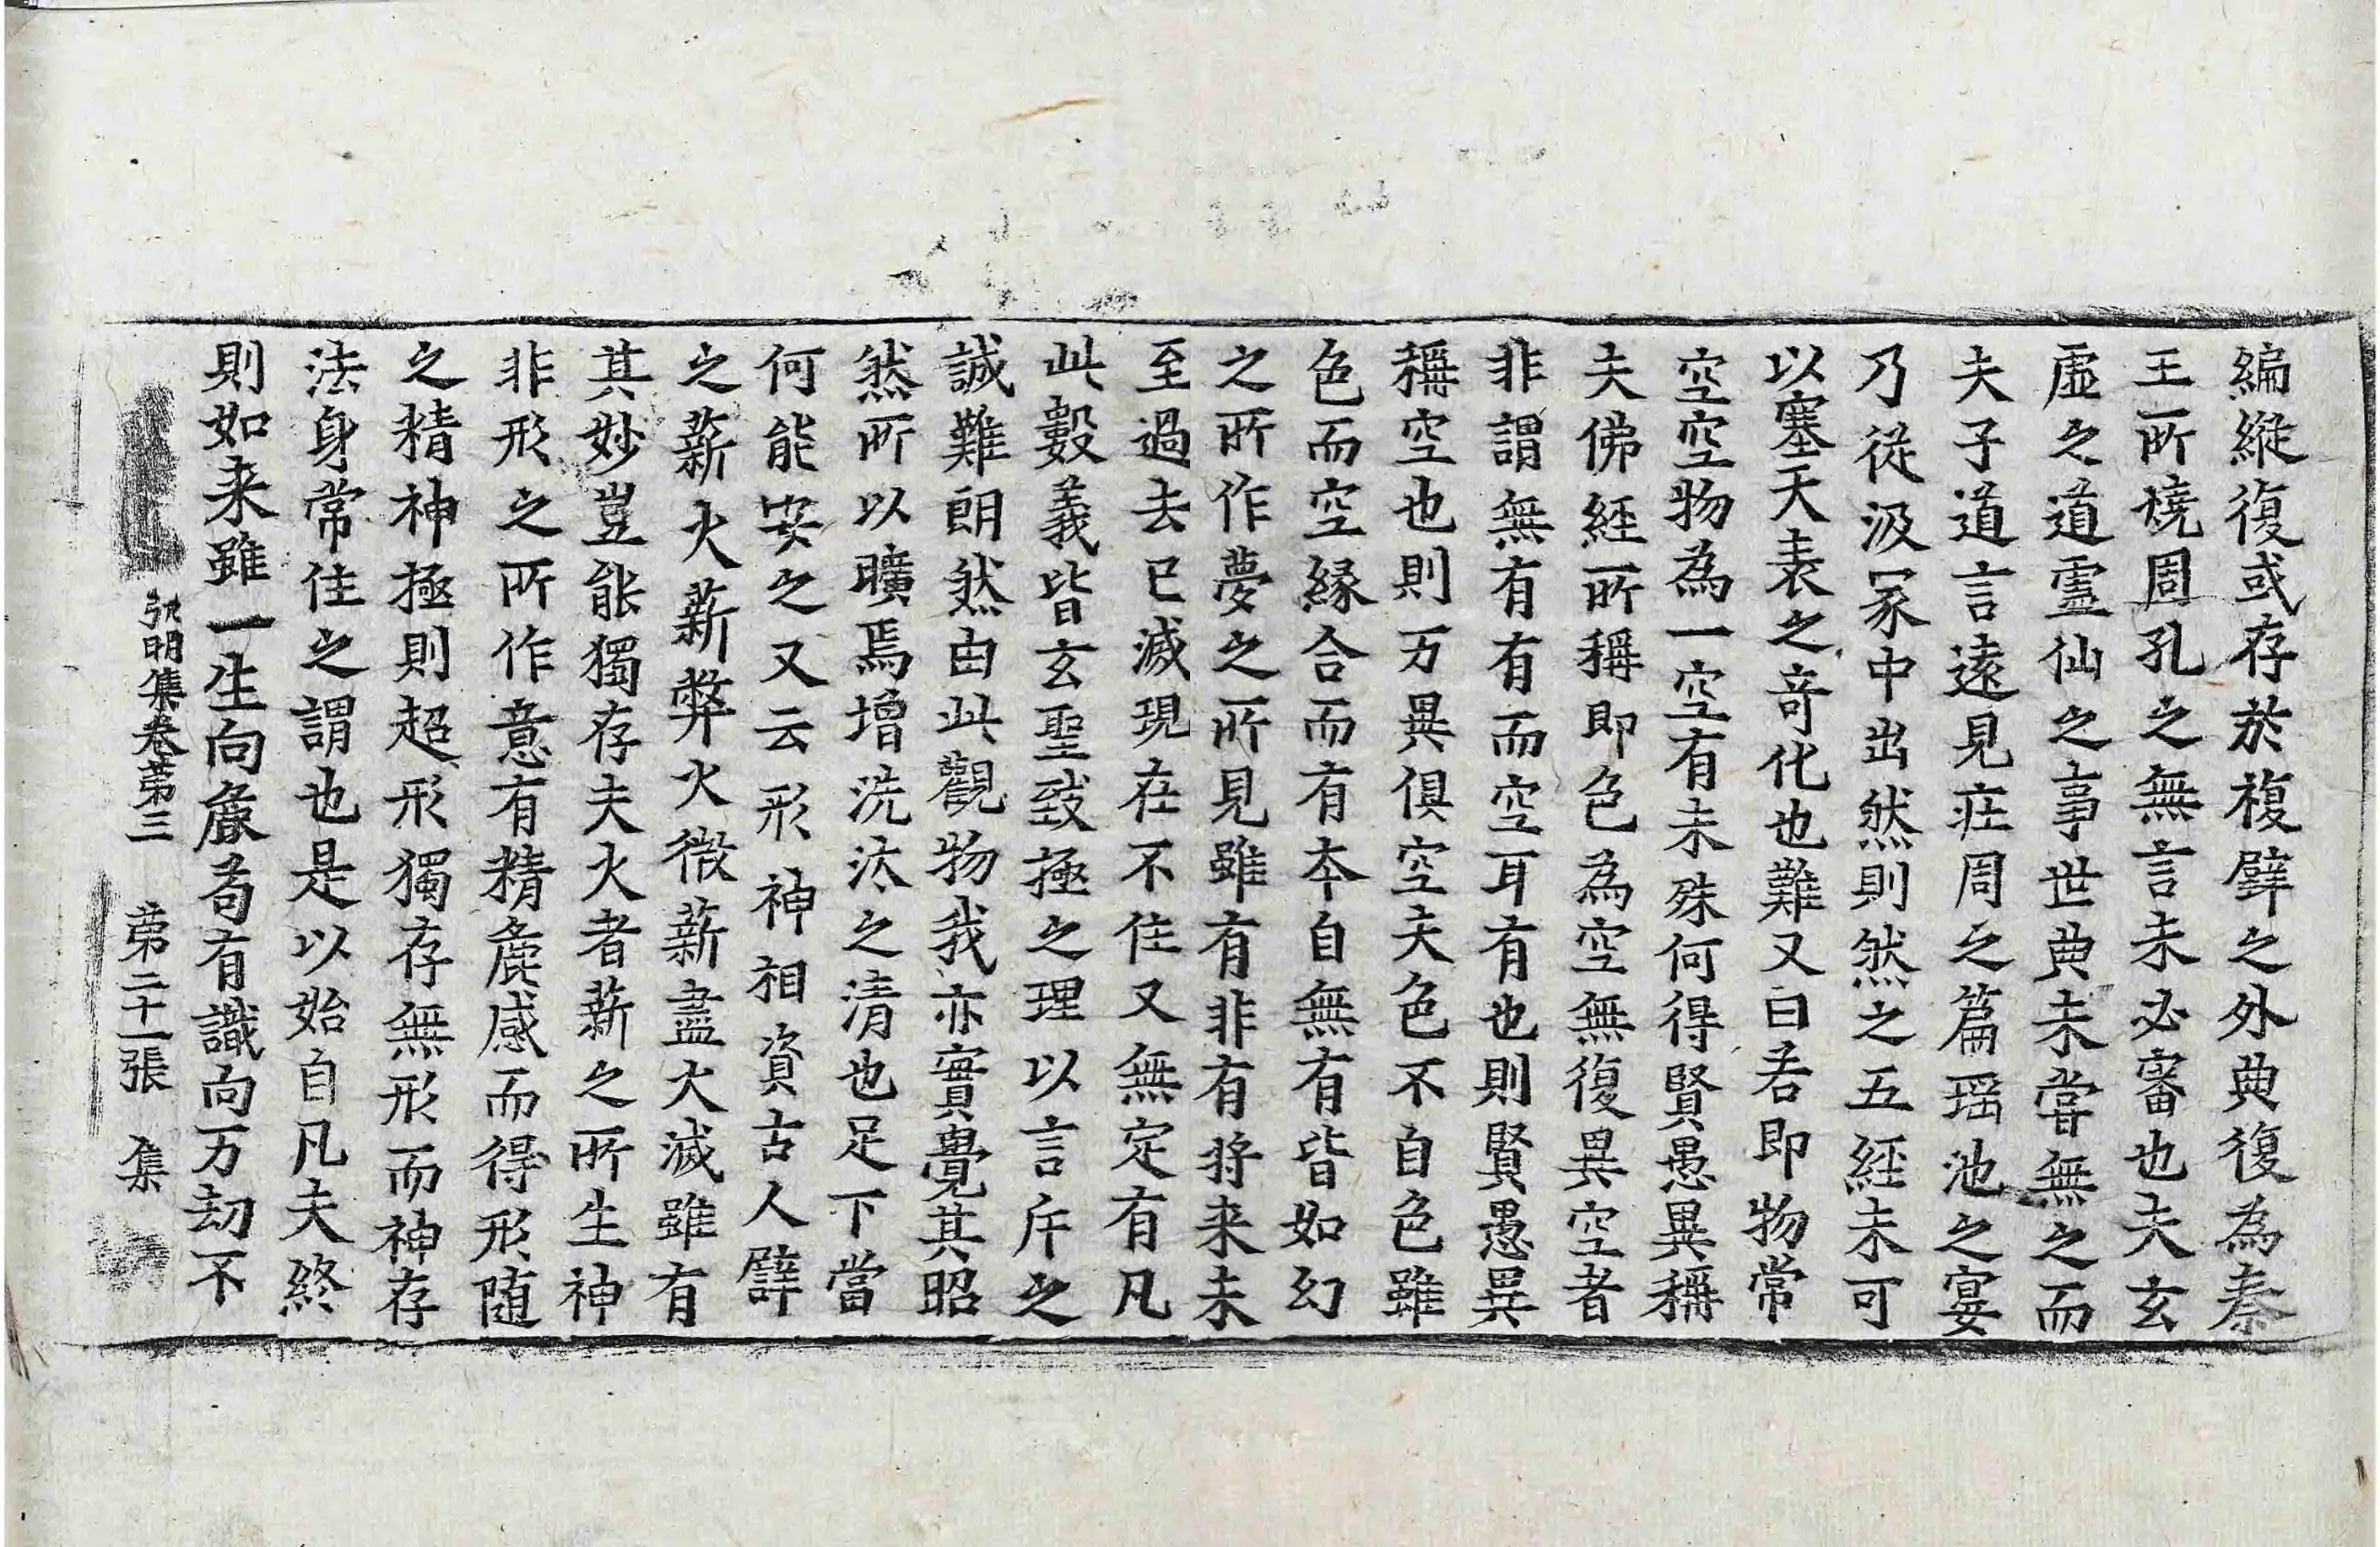 編縱復或存於複壁之外典復為秦
王所燒周孔之無言未必審也夫玄
虛之道靈仙之事世典未嘗無之而
夫子道言遠見莊周之篇瑶池之宴
乃從汲冢中出然則然之五經未可
以塞天表之奇化也難又曰若即物常
空空物為一空有未殊何得賢愚異稱
夫佛經所稱即色為空無復異空者
非謂無有有而空耳有也則賢愚異
稱空也則万異俱空夫色不自色雖
色而空緣合而有本自無有皆如幻
之所作夢之所見雖有非有将来未
至過去已滅現在不住又無定有凡
此數義皆玄聖致極之理以言斥之
誠難朗然由此觀物我亦實覺其昭
然所以曠焉增洗汰之清也足下當
何能安之又云形神相資古人譬
之薪火薪弊火微薪盡火滅雖有
其妙豈能獨存夫火者薪之所生神
非形之所作意有精麁感而得形随
之精神極則超形獨存無形而神存
法身常住之謂也是以始自凡夫終
則如来雖一生向麁苟有識向万劫不
弘明集卷第三 第二十一張 集